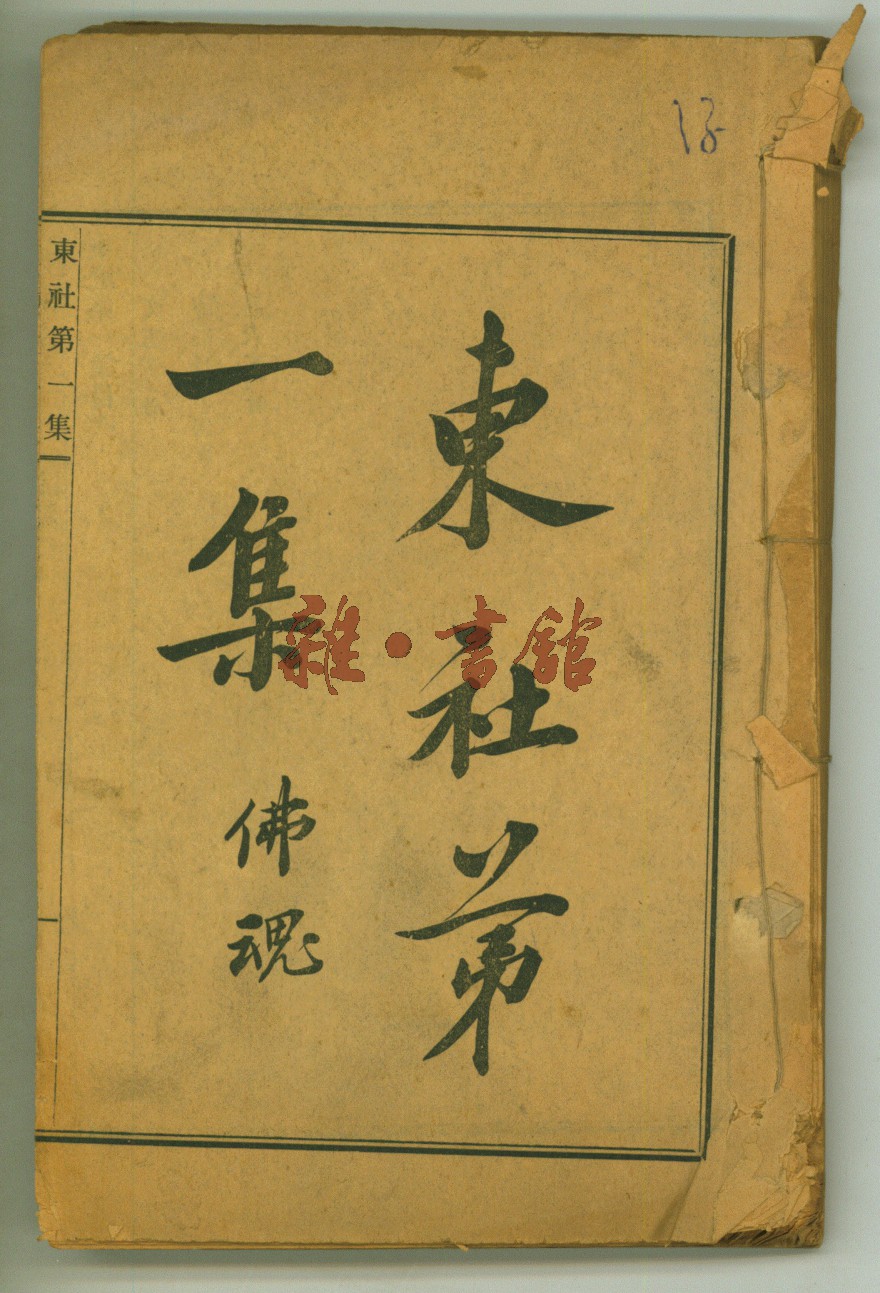 東社第
一集
佛魂
東社第一集
雜·書館